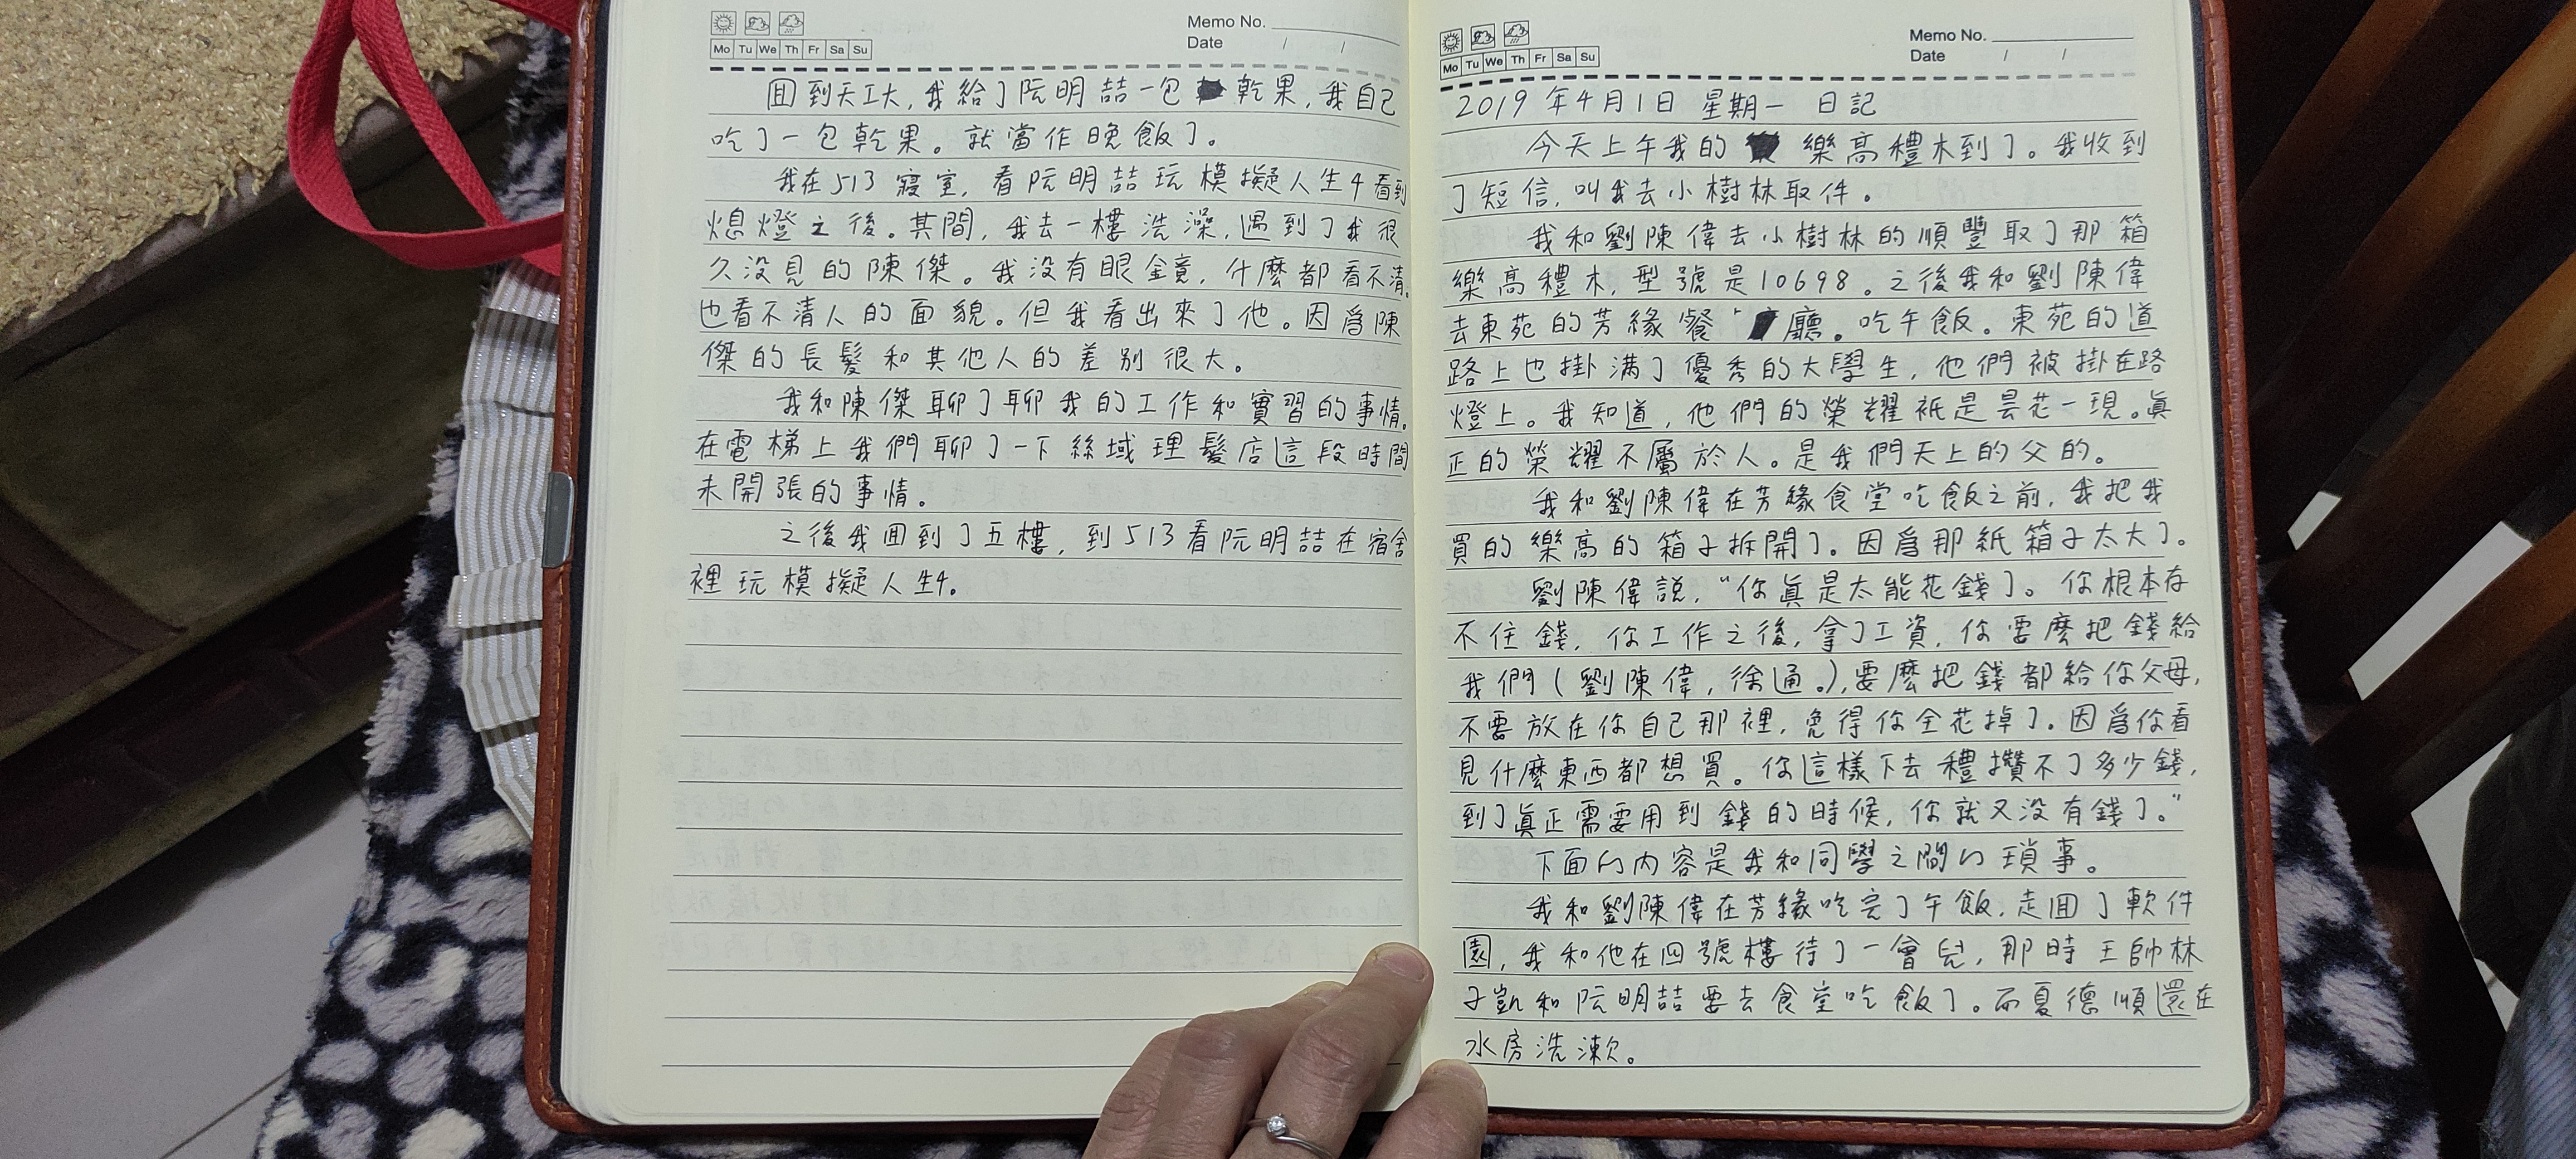 Memo No.
Mo Tu We Th Fr Sa Su
Date / /
囬到天工大，我給了阮明喆一包乾果，我自己
吃了一包乾果。就當作晚飯了。
我在513寢室，看阮明喆玩模擬人生4看到
熄燈之後。其間，我去一樓洗澡，遇到了我很
久没見的陳傑。我没有眼鏡，什麼都看不清。
也看不清人的面貌。但我看出來了他。因爲陳
傑的長髮和其他人的差别很大。
我和陳傑聊了聊我的工作和實習的事情。
在電梯上我們聊了一下絲域理髮店這段時間
未開張的事情。
之後我囬到了五樓，到513看阮明喆在宿舍
裡玩模擬人生4。
Memo No.
Mo Tu We Th Fr Sa Su
Date / /
2019年4月1日 星期一 日記
今天上午我的樂高禮木到了。我收到
了短信，叫我去小樹林取件。
我和劉陳偉去小樹林的順豐取了那箱
樂高禮木，型號是10698。之後我和劉陳偉
去東苑的芳緣餐廳。吃午飯。東苑的道
路上也掛满了優秀的大學生，他們被掛在路
燈上。我知道，他們的榮耀衹是曇花一現。眞
正的榮耀不屬於人。是我們天上的父的。
我和劉陳偉在芳緣食堂吃飯之前，我把我
買的樂高的箱子拆開了。因爲那紙箱子太大了。
劉陳偉説，“你眞是太能花錢了。你根本存
不住錢，你工作之後，拿了工資，你要麽把錢給
我們（劉陳偉，徐通。），要麽把錢都給你父母，
不要放在你自己那裡，免得你全花掉了。因爲你看
見什麼東西都想買。你這樣下去禮攢不了多少錢，
到了眞正需要用到錢的時候，你就又没有錢了。”
下面的内容是我和同學之間的瑣事。
我和劉陳偉在芳緣吃完了午飯，走囬了軟件
園，我和他在四號樓待了一會兒，那時王帥林
子凱和阮明喆要去食堂吃飯了。而夏德順還在
水房洗漱。